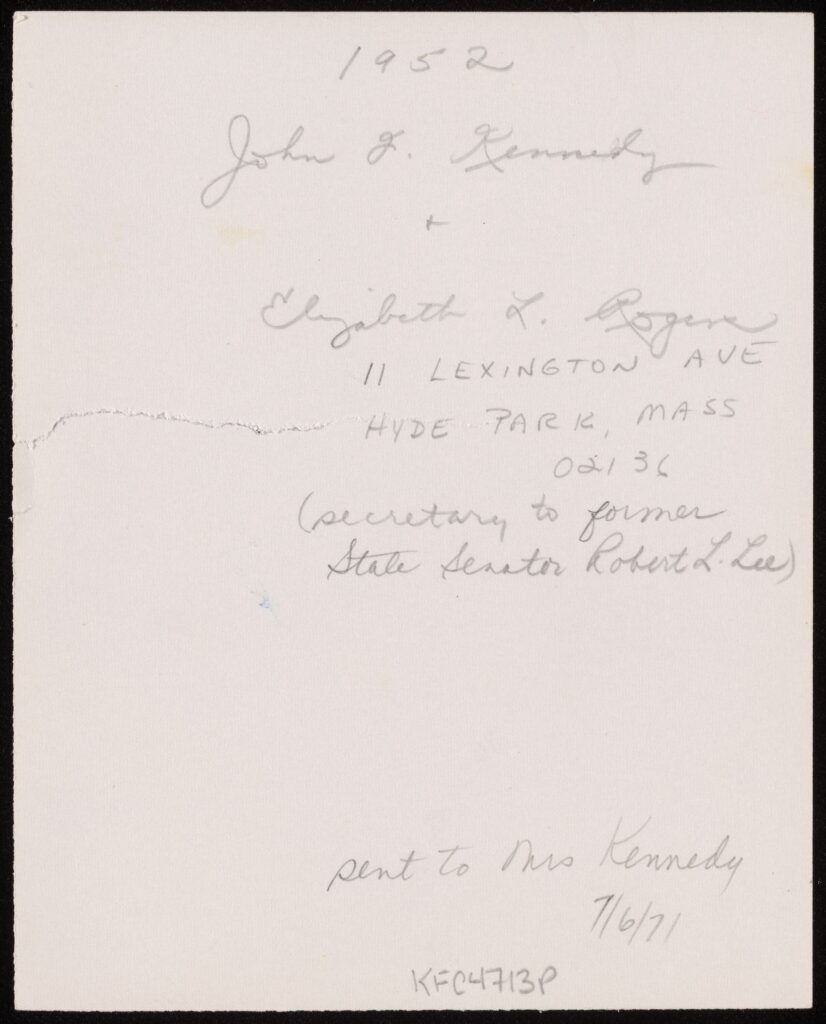 1952
John F. Kennedy
+
Elizabeth L. Rogers
11 LEXINGTON AVE
HYDE PARK, MASS
02136
(secretary to former
State Senator Robert L. Lee)
sent to Mrs Kennedy
7/6/71
KFC4713P